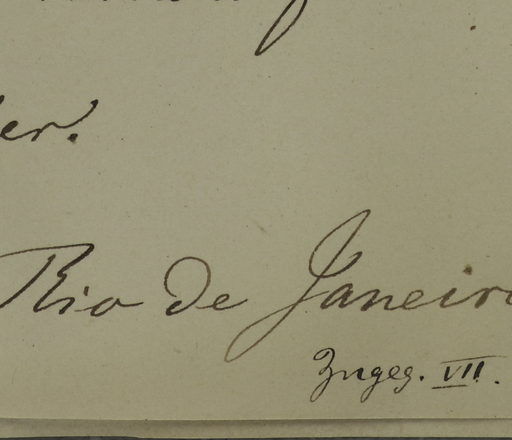 er.
Rio de Janeiro
Zugeg. VII.